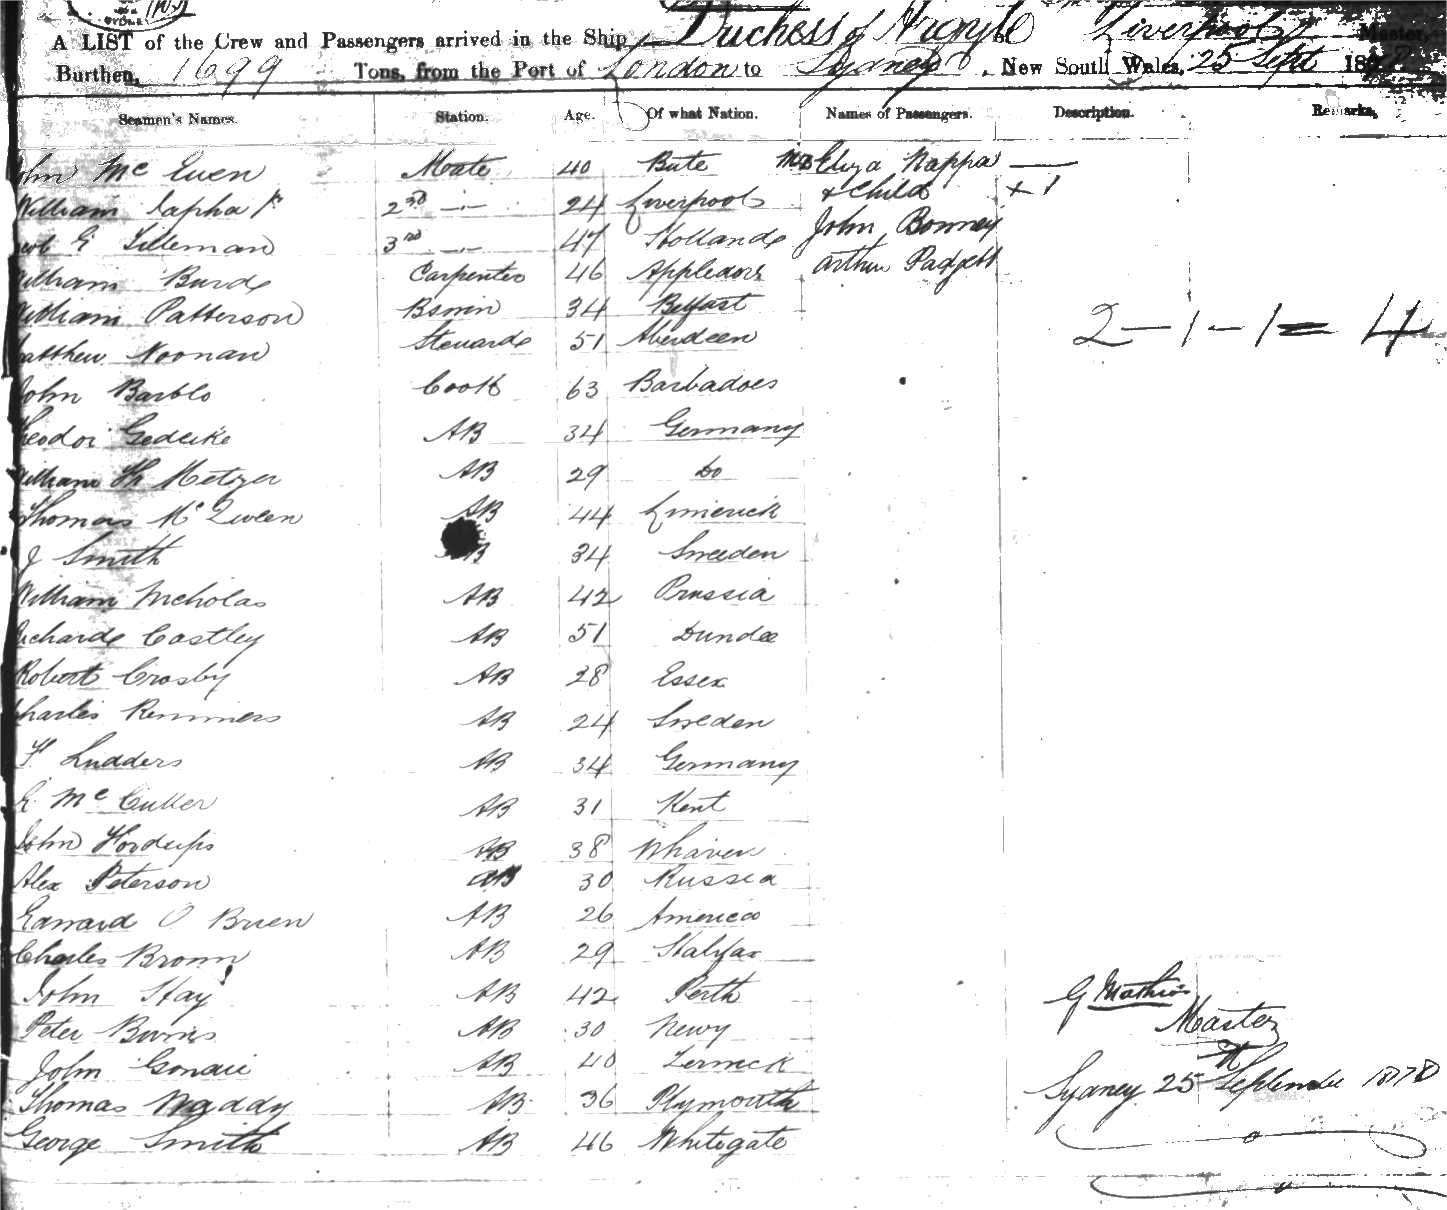 A LIST of the Crew and Passengers arrived in the Ship Duchess of Argyle of Liverpool Master,
Burthen, 1699 Tons, from the Port of London to Sydney, New South Wales, 25 Sept 187
Seamen's Names. Station. Age. Of what Nation. Names of Passengers. Description. Remarks.
John Mc Ewen Mate 40 Bute Mrs Eliza Nappa —
William 2nd —"— 24 Liverpool & Child + 1
G Tilleman 3rd —"— 47 Holland John Bonney
William Burd Carpenter 46 Appledore Arthur Padgett
William Patterson Bsmin 34 Belfast
2 — 1 — 1 = 4
Matthew Noonan Steward 51 Aberdeen
John Barblo Cook 63 Barbadoes
Theodor Gedeike AB 34 Germany
William Metzer AB 29 Do
Thomas Mc Queen AB 44 Limerick
J Smith AB 34 Sweeden
William Nicholas AB 42 Prussia
Richard Costley AB 51 Dundee
Robert Crosby AB 28 Essex
Charles Remmers AB 24 Sweden
F Ludders AB 34 Germany
Mc Culler AB 31 Kent
John AB 38 Whaven
Alex Peterson AB 30 Russia
Edward O Brien AB 26 America
Charles Brown AB 29 Halifax
John Hay AB 42 Perth
G Mathius
Master
Peter Burns AB 30 Newy
John AB 40 Lerwick
Sydney 25th September 1878
Thomas Waddy AB 36 Plymouth
George Smith AB 46 Whitegate